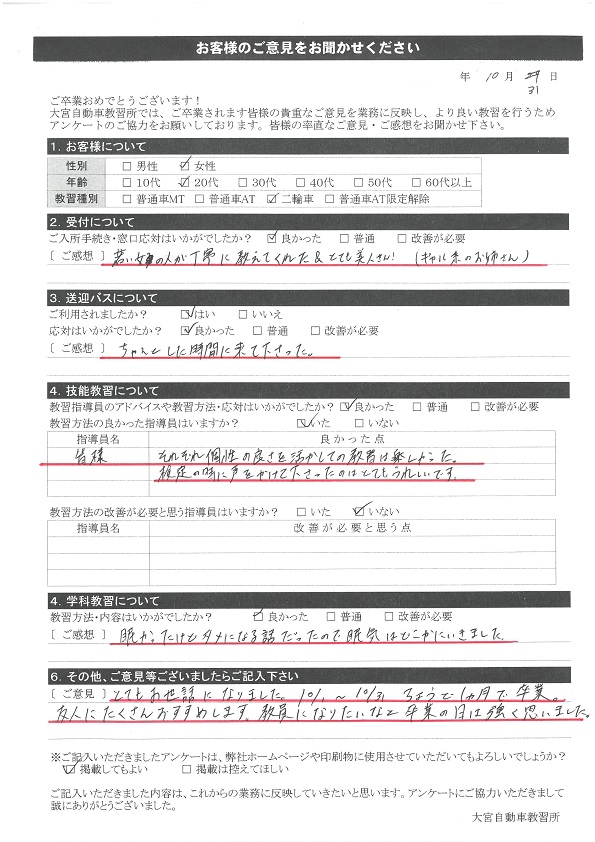 お客様のご意見をお聞かせください
年 10月 31日
ご卒業おめでとうございます！
大宮自動車教習所では、ご卒業されます皆様の貴重なご意見を業務に反映し、より良い教習を行うため
アンケートのご協力をお願いしております。皆様の率直なご意見・ご感想をお聞かせ下さい。
1. お客様について
性別 □男性 ☑女性
年齢 □10代 ☑20代 □30代 □40代 □50代 □60代以上
教習種別 □普通車MT □普通車AT ☑二輪車 □普通車AT限定解除
2. 受付について
ご入所手続き・窓口応対はいかがでしたか？ ☑良かった □普通 □改善が必要
［ご感想］ 若い女の人が丁寧に教えてくれた&とても美人さん！（ギャル系のお姉さん）
3. 送迎バスについて
ご利用されましたか？ ☑はい □いいえ
応対はいかがでしたか？ ☑良かった □普通 □改善が必要
［ご感想］ ちゃんとした時間に来て下さった。
4. 技能教習について
教習指導員のアドバイスや教習方法・応対はいかがでしたか？ ☑良かった □普通 □改善が必要
教習方法の良かった指導員はいますか？ ☑いた □いない
指導員名 良かった点
皆様 それぞれ個性の良さを活かしての教習は楽しかった。
補足の時に声をかけて下さったのはとてもうれしいです。
教習方法の改善が必要と思う指導員はいますか？ □いた ☑いない
指導員名 改善が必要と思う点
4. 学科教習について
教習方法・内容はいかがでしたか？ ☑良かった □普通 □改善が必要
［ご感想］ 眠かったけどタメになる話だったので眠気はどこかにいきました。
6. その他、ご意見等ございましたらご記入下さい
［ご意見］ とてもお世話になりました。10/1〜10/31 ちょうど1ヵ月で卒業。
友人にたくさんおすすめします。教員になりたいなと卒業の日は強く思いました。
※ご記入いただきましたアンケートは、弊社ホームページや印刷物に使用させていただいてもよろしいでしょうか？
☑掲載してもよい □掲載は控えてほしい
ご記入いただきました内容は、これからの業務に反映していきたいと思います。アンケートにご協力いただきまして
誠にありがとうございました。
大宮自動車教習所